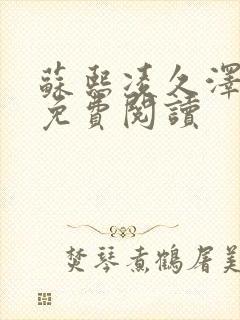 蘇熙凌久澤
免費閱讀
焚琴煮鶴屠美